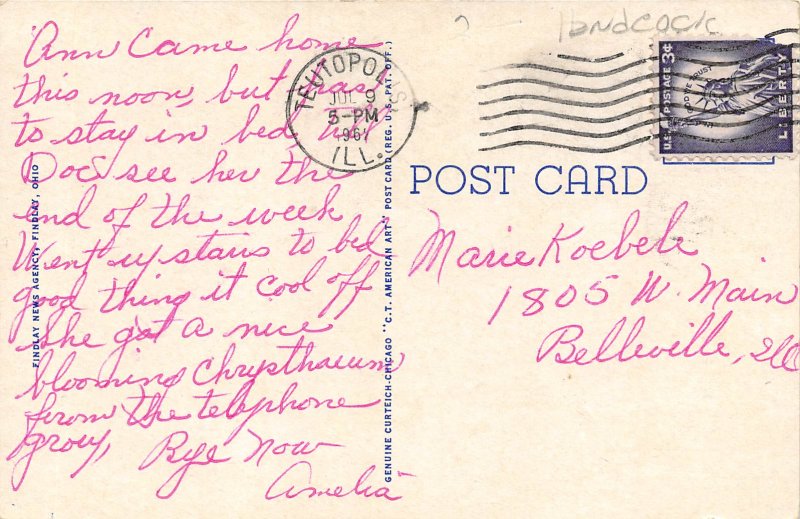 Ann Came home
this noon, but has
to stay in bed, till
Docs see her the
end of the week
Went upstairs to bed
good thing it cool off
She got a nice
blooming Chrysthaeum
from the telephone
group,
Bye Now
Amelia
FINDLAY NEWS AGENCY, FINDLAY, OHIO
GENUINE CURTEICH-CHICAGO "C.T. AMERICAN ART" POST CARD (REG. U.S. PAT. OFF.)
TEUTOPOLIS,
JUL 9
5-PM
1961
ILL.
Handcock
U.S. POSTAGE 3¢
IN GOD WE TRUST
LIBERTY
POST CARD
Marie Koebele
1805 W. Main
Belleville, Ill